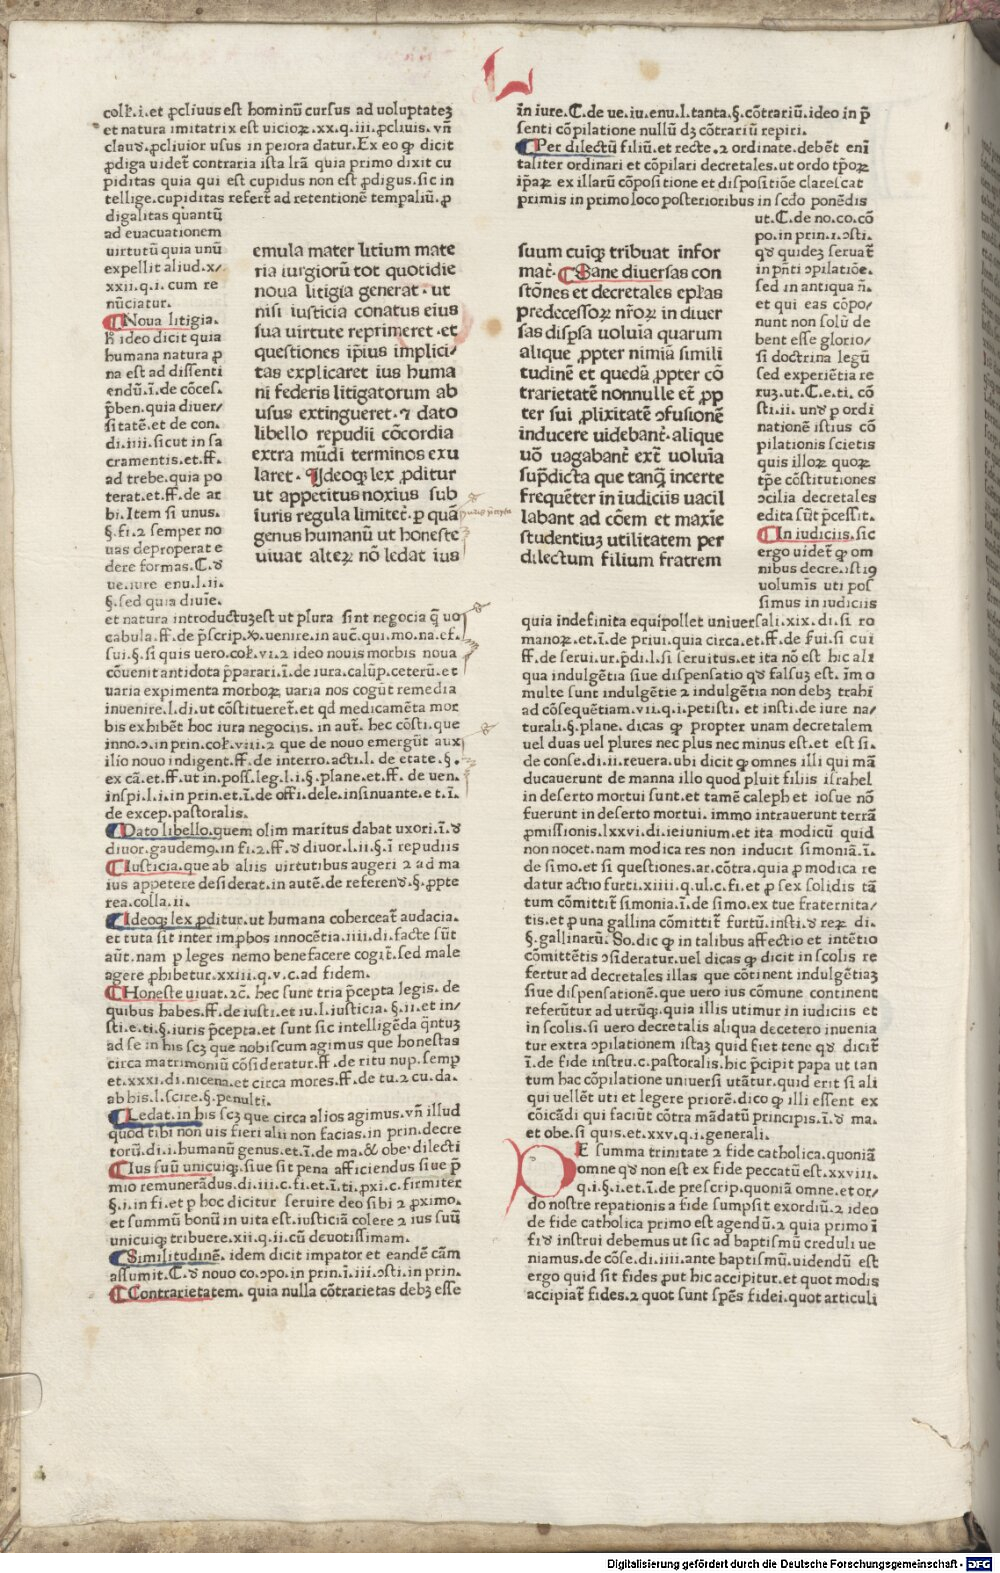 colł.i.et ꝓcliuus est hominū cursus ad uoluptateꝫ
et natura imitatrix est uicioꝝ.xx.q.iii.ꝓcliuis.vñ
claud̛.ꝓcliuior usus in peiora datur.Ex eo ꝙ dicit
ꝓdiga uidet᷑ contraria ista lr̄a quia primo dixit cu
piditas quia qui est cupidus non est ꝓdigus.sic in
tellige.cupiditas refert᷑ ad retentionē tempaliū.ꝓ
digalitas quantū
ad euacuationem
uirtutū quia unū
expellit aliud.x/
xxii.q.i.cum re
nūciatur.
Noua litigia.
h̄ ideo dicit quia
humana natura ꝓ
na est ad dissenti
endū.ī.de cōces.
p̄ben.quia diuer/
sitatē.et de con.
di.iiii.sicut in sa
cramentis.et.ff.
ad trebe.quia po
terat.et.ff.de ar
bi.Item si unus.
§.fi.2 semper no
uas deproperat e
dere formas.C.d̛
ue.iure enu.l.ii.
§.sed quia diuīe.
et natura introductuꝫest ut plura sint negocia q̄ uo
cabula.ff.de p̄scrip.ꝟ.uenire.in auc̄.qui.mo.na.ef.
sui.§.si quis uero.coł.vi.2 ideo nouis morbis noua
cōuenit antidota p̄parari.ī.de iura.calūp.ceterū.et
uaria expimenta morboꝝ uaria nos cogūt remedia
inuenire.l.di.ut cōstitueret᷑.et qd̄ medicamēta mor
bis exhibēt hoc iura negociis.in aut̄.hec cōsti.que
inno.ɔ.in prin.coł.viii.2 que de nouo emergūt aux
ilio nouo indigent.ff.de interro.acti.l.de etate.§.
ex cā.et.ff.ut in.poss.leg.l.i.§.plane.et.ff.de uen.
inspi.l.i.in prin.et.ī.de offi.dele.insinuante.et.ī.
de excep.pastoralis.
Dato libello.quem olim maritus dabat uxori.ī.d̛
diuor.gaudemꝰ.in fi.2.ff.d̛ diuor.l.ii.§.ī repudiis
Iusticia.que ab aliis uirtutibus augeri 2 ad ma
ius appetere desiderat.in autē.de referend̛.§.ꝓpte
rea.colla.ii.
Ideoqꝫ lex ꝓditur.ut humana coherceat᷑ audacia.
et tuta sit inter imꝓbos innocētia.iiii.di.facte sūt
aūt.nam ꝑ leges nemo benefacere cogit᷑.sed male
agere ꝓhibetur.xxiii.q.v.c.ad fidem.
Honeste uiuat.2c̄.hec sunt tria p̄cepta legis.de
quibus habes.ff.de iusti.et iu.l.iusticia.§.ii.et in/
sti.e.ti.§.iuris p̄cepta.et sunt sic intelligēda q̄ntuꝫ
ad se in his scꝫ que nobiscum agimus que honestas
circa matrimoniū cōsideratur.ff.de ritu nup.semꝑ
et.xxxi.di.nicena.et circa mores.ff.de tu.2 cu.da.
ab his.l.scire.§.penulti.
Ledat.in his scꝫ que circa alios agimus.vñ illud
quod tibi non uis fieri alii non facias.in prin.decre
torū.di.i.humanū genus.et.ī.de ma.& obe.dilecti
Ius suū unicuiqꝫ.siue sit pena afficiendus siue p̄
mio remunerādus.di.iii.c.fi.et.ī.ti.ꝓxi.c.firmiter
§.i.in fi.et ꝑ hoc dicitur seruire deo sibi 2 ꝓximo.
et summū bonū in uita est.iusticiā colere 2 ius suū
unicuiqꝫ tribuere.xii.q.ii.cū deuotissimam.
Similitudinē.idem dicit impator et eandē cām
assumit.C.d̛ nouo co.ɔpo.in prin.ī.iii.ɔsti.in prin.
Contrarietatem.quia nulla cōtrarietas debꝫ esse
emula mater litium mate
ria iurgiorū tot quotidie
noua litigia generat.ut
nisi iusticia conatus eius
sua uirtute reprimeret.et
questiones ip̄ius implici/
tas explicaret ius huma
ni federis litigatorum ab
usus extingueret.⁊ dato
libello repudii cōcordia
extra mūdi terminos exu
laret.Ideoqꝫ lex ꝓditur
ut appetitus noxius sub
iuris regula limitet᷑.ꝑ quā
genus humanū ut honeste
uiuat alteꝝ nō ledat ius
suum cuiqꝫ tribuat infor
mat᷑.Sane diuersas con
stōnes et decretales epłas
predecessoꝝ nr̄oꝝ in diuer
sas disꝑsa uoluīa quarum
alique ꝓpter nimiā simili
tudinē et quedā ꝓpter cō
trarietatē nonnulle et ꝓp
ter sui ꝓlixitatē ɔfusionē
inducere uidebant᷑.alique
uō uagabant᷑ ext̄ uoluīa
sup̄dicta que tanqꝫ incerte
frequēter in iudiciis uacil
labant ad cōem et maxīe
studentiuꝫ utilitatem per
dilectum filium fratrem
in iure.C.de ue.iu.enu.l.tanta.§.cōtrariū.ideo in p̄
senti cōpilatione nullū dꝫ cōtrariū repiri.
Per dilectū filiū.et recte.2 ordinate.debēt enī
taliter ordinari et cōpilari decretales.ut ordo tp̄oꝝ
ip̄aꝝ ex illarū cōpositione et dispositiōe clarescat
primis in primo loco posterioribus in scdo ponēdis
ut.C.de no.co.cō
po.in prin.ɪ.ɔsti.
qd̛ quideꝫ seruat᷑
in p̄nti ɔpilatiōe.
sed in antiqua ñ.
et qui eas cōpo/
nunt non solū de
bent esse glorio/
si doctrina legū
sed experiētia re
ruꝫ.ut.C.e.ti.cō
sti.ii.und̛ ꝑ ordi
nationē istius cō
pilationis scietis
quis illoꝝ quoꝝ
tp̄e cōstitutiones
ɔcilia decretales
edita sūt p̄cessit.
In iudiciis.sic
ergo uidet᷑ ꝙ om
nibus decre.istiꝰ
uolumīs uti pos
simus in iudiciis
quia indefinita equipollet uniuersali.xix.di.si ro
manoꝝ.et.ī.de priui.quia circa.et.ff.de fui.si cui
ff.de serui.ur.p̄di.l.si seruitus.et ita nō est hic ali
qua indulgētia siue dispensatio qd̛ falsuꝫ est.īm o
multe sunt indulgētie 2 indulgētia non debꝫ trahi
ad cōsequētiam.vii.q.i.petisti.et insti.de iure na/
turali.§.plane.dicas ꝙ propter unam decretalem
uel duas uel plures nec plus nec minus est.et est si.
de conse.di.ii.reuera.ubi dicit ꝙ omnes illi qui mā
ducauerunt de manna illo quod pluit filiis israhel
in deserto mortui sunt.et tamē caleph et iosue nō
fuerunt in deserto mortui.immo intrauerunt terrā
ꝓmissionis.lxxvi.di.ieiunium.et ita modicū quid
non nocet.nam modica res non inducit simoniā.ī.
de simo.et si questiones.ar.cōtra.quia ꝓ modica re
datur actio furti.xiiii.q.ul.c.fi.et ꝓ sex solidis tā
tum cōmittit᷑ simonia.ī.de simo.ex tue fraternita/
tis.et ꝓ una gallina cōmittit᷑ furtū.insti.d̛ reꝝ di.
§.gallinarū.So.dic ꝙ in talibus affectio et intētio
cōmittētis ɔsideratur.uel dicas ꝙ dicit in scolis re
fertur ad decretales illas que cōtinent indulgētiaꝫ
siue dispensationē.que uero ius cōmune continent
referūtur ad utrūqꝫ.quia illis utimur in iudiciis et
in scolis.si uero decretalis aliqua decetero inuenia
tur extra ɔpilationem istaꝫ quid fiet tene qd̛ dicit᷑
ī.de fide instru.c.pastoralis.hic p̄cipit papa ut tan
tum hac cōpilatione uniuersi utātur.quid erit si ali
qui uellēt uti et legere priorē.dico ꝙ illi essent ex
cōicādi qui faciūt cōtra mādatū principis.ī.d̛ ma.
et obe.si quis.et.xxv.q.i.generali.
DE summa trinitate 2 fide catholica.quoniā
omne qd̛ non est ex fide peccatū est.xxviii.
q.i.§.i.et.ī.de prescrip.quoniā omne.et or/
do nostre repationis a fide sumpsit exordiū.2 ideo
de fide catholica primo est agendū.2 quia primo ī
fid̛ instrui debemus ut sic ad baptismū creduli ue
niamus.de cōse.di.iiii.ante baptismū.uidendū est
ergo quid sit fides ꝓut hic accipitur.et quot modis
accipiat᷑ fides.2 quot sunt sp̄es fidei.quot articuli
Digitalisierung gefördert durch die Deutsche Forschungsgemeinschaft - DFG